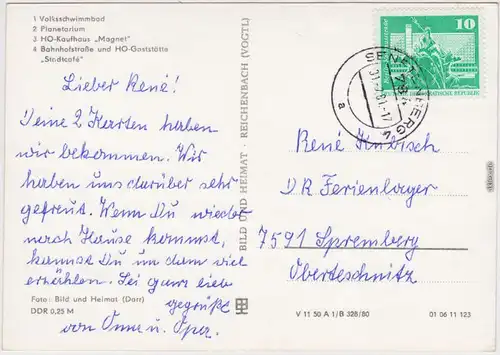 1 Volksschwimmbad
2 Planetarium
3 HO-Kaufhaus „Magnet"
4 Bahnhofstraße und HO-Gaststätte
„Stadtcafé"
Lieber René!
Deine 2 Karten haben
wir bekommen. Wir
haben uns darüber sehr
gefreut. Wenn Du wieder
nach Hause kommst,
kannst Du uns dann viel
erzählen. Sei ganz lieb
gegrüßt
von Oma u. Opa.
Foto: Bild und Heimat (Darr)
DDR 0,25 M
BILD UND HEIMAT · REICHENBACH (VOGTL)
SENFTENBERG 4
a
10
DEMOKRATISCHE REPUBLIK
René Kubisch
DR Ferienlager
7591 Spremberg
Oberteschnitz
V 11 50 A 1/B 328/80
01 06 11 123